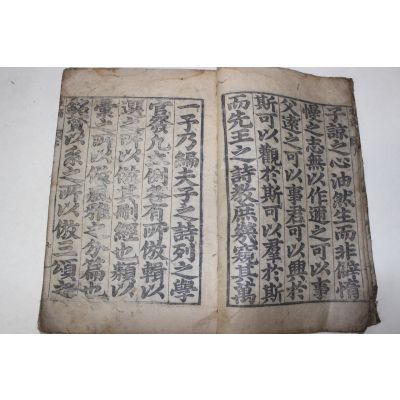 子諒之心油然生而非僻惰
慢之志無以作邇之可以事
父遠之可以事君可以興於
斯可以觀於斯可以羣於斯
而先王之詩教庶幾窺其萬
一子乃編夫子之詩列之學
官發凡立例各有所倣輯以
選之所以倣其刪經也類以
彙之所以倣風雅之分編也
銘贊以系之所以倣三頌之